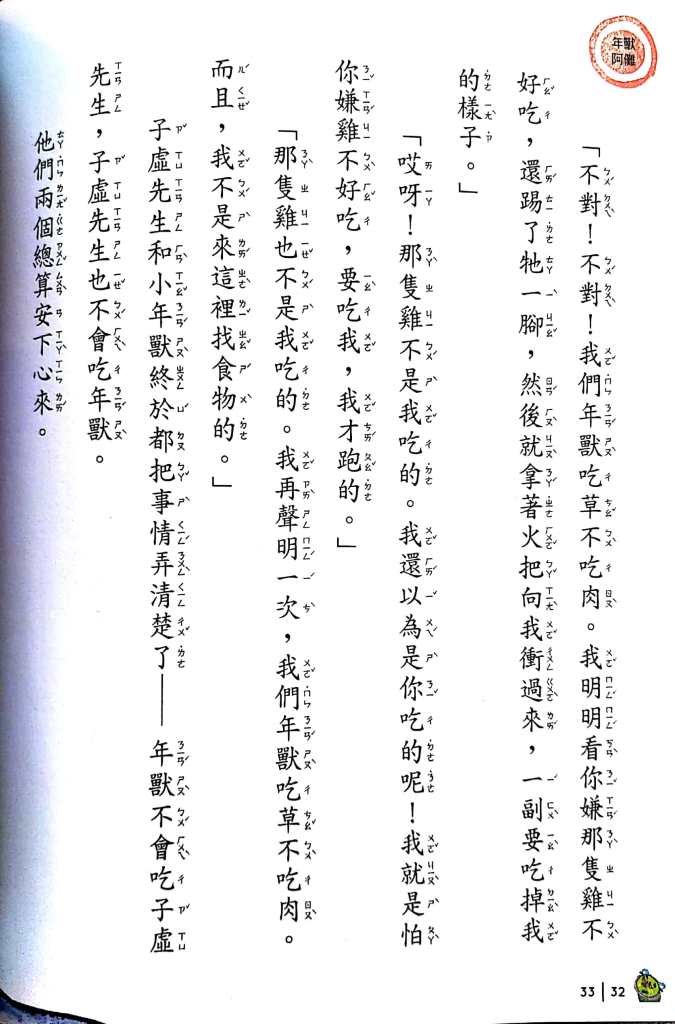 年獸
阿儺
「不對！不對！我們年獸吃草不吃肉。我明明看你嫌那隻雞不
好吃，還踢了牠一腳，然後就拿著火把向我衝過來，一副要吃掉我
的樣子。」
「哎呀！那隻雞不是我吃的。我還以為是你吃的呢！我就是怕
你嫌雞不好吃，要吃我，我才跑的。」
「那隻雞也不是我吃的。我再聲明一次，我們年獸吃草不吃肉。
而且，我不是來這裡找食物的。」
子虛先生和小年獸終於都把事情弄清楚了——年獸不會吃子虛
先生，子虛先生也不會吃年獸。
他們兩個總算安下心來。
33 | 32